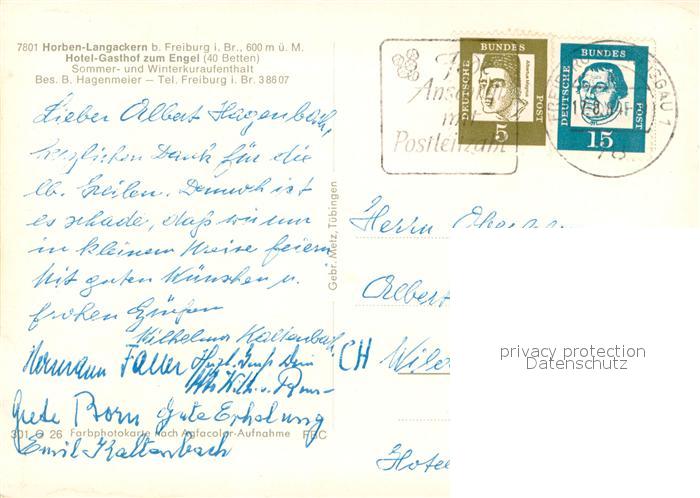 7801 Horben-Langackern b. Freiburg i. Br., 600 m ü. M.
Hotel-Gasthof zum Engel (40 Betten)
Sommer- und Winterkuraufenthalt
Bes. B. Hagenmeier — Tel. Freiburg i. Br. 38607
Lieber Albert Hagenbach,
herzlichen Dank für die
lb. Zeilen. Dennoch ist
es schade, daß wir nur
in kleinem Kreise feiern
Mit guten Wünschen u.
frohen Grüßen
Wilhelma Kaltenbach
Hermann Faller
Grete Born Gute Erholung
Emil Kaltenbach
301 G 26 Farbphotokarte nach Agfacolor-Aufnahme FBC
Gebr. Metz, Tübingen
Postleitzahl
DEUTSCHE BUNDES POST
Albertus Magnus
5
DEUTSCHE BUNDES POST
15
Herrn
Albert
CH
Hote
privacy protection
Datenschutz